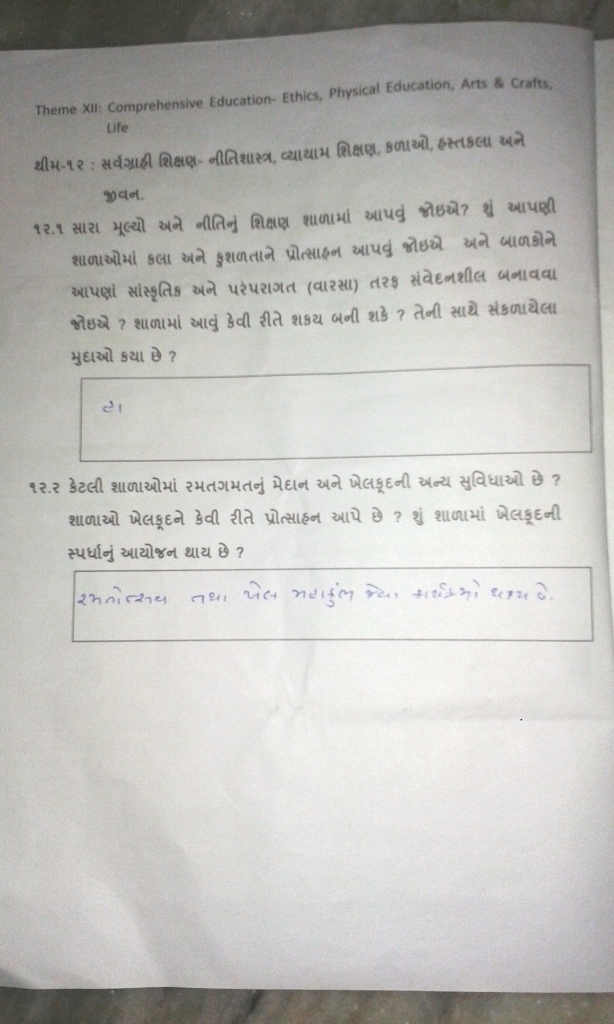 Theme XII: Comprehensive Education- Ethics, Physical Education, Arts & Crafts,
Life
થીમ-૧૨ : સર્વગ્રાહી શિક્ષણ- નીતિશાસ્ત્ર, વ્યાયામ શિક્ષણ, કળાઓ, હસ્તકલા અને
જીવન.
૧૨.૧ સારા મૂલ્યો અને નીતિનું શિક્ષણ શાળામાં આપવું જોઇએ? શું આપણી
શાળાઓમાં કલા અને કુશળતાને પ્રોત્સાહન આપવું જોઇએ અને બાળકોને
આપણાં સાંસ્કૃતિક અને પરંપરાગત (વારસા) તરફ સંવેદનશીલ બનાવવા
જોઇએ ? શાળામાં આવું કેવી રીતે શકય બની શકે ? તેની સાથે સંકળાયેલા
મુદાઓ કયા છે ?
હા
૧૨.૨ કેટલી શાળાઓમાં રમતગમતનું મેદાન અને ખેલકૂદની અન્ય સુવિધાઓ છે ?
શાળાઓ ખેલકૂદને કેવી રીતે પ્રોત્સાહન આપે છે ? શું શાળામાં ખેલકૂદની
સ્પર્ધાનું આયોજન થાય છે ?
રમતોત્સવ તથા ખેલ મહાકુંભ જેવા કાર્યક્રમો થાય છે.